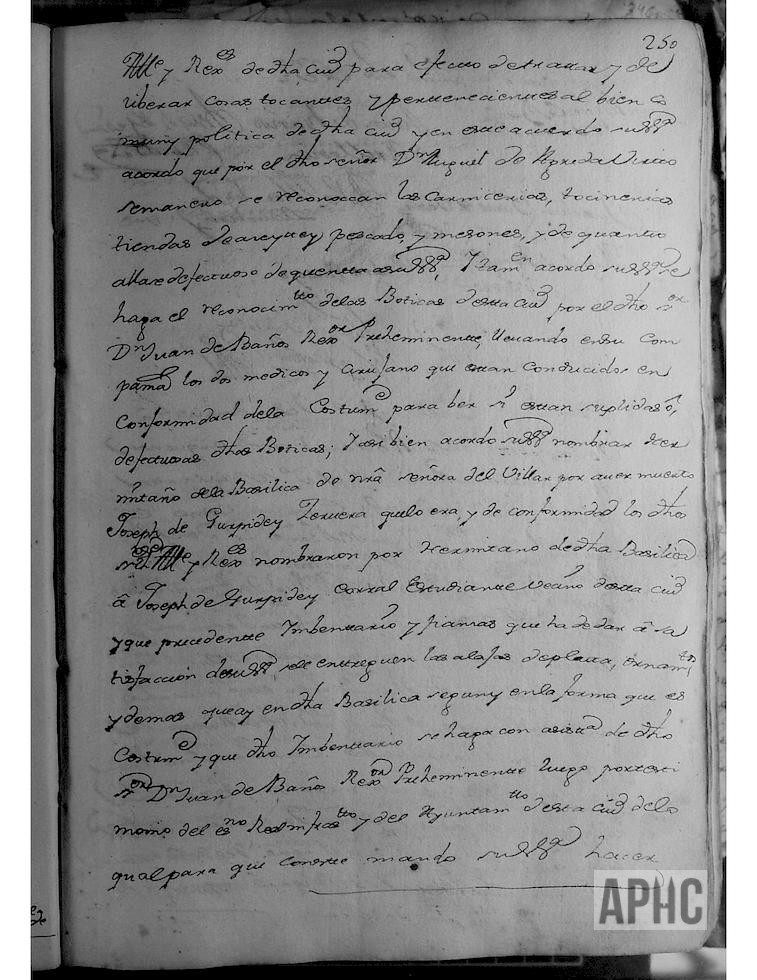 250
Alle y Rexes de dha ciud para efecto de tratar y de
liberar cosas tocantes y pertenecientes al bien co
mun y politica de dha ciud y en este acuerdo su ssa
acordo que por el dho señor Dn Miguel de Agreda
semanero se reconozcan las carnicerias, tocinerias
tiendas de aceyte y pescado, y mesones, y de quanto
allare defectuoso de quenta a su ssa, Y tamen acordo su ssa se
haga el reconocimto de las Boticas desta ciud por el dho sor
Dn Juan de Baños Rexor Preheminente, llevando en su com
pañia los dos medicos y cirujano que estan conducidos en
conformidad de la costume para ber si estan suplidas o,
defectuosas dhas Boticas; Y asi bien acordo su ssa nombrar Her
mitaño de la Basilica de nra señora del Villar por aver muerto
Joseph de Gurpide y que lo era, y de conformidad los dhos
sres Alle y Rexes nombraron por Hermitano de dha Basilica
a Joseph de Gurpide y Corral Estudiante desta ciud
y que precedente Imbentario y fianzas que ha de dar a sa
tisfaccion de su ssa, se le entreguen las alajas de plata, ornamtos,
y demas que ay en dha Basilica segun y en la forma que es
costume y que dho Imbentario se haga con asista de dho
sor Dn Juan de Baños Rexor Preheminente luego por testi
monio del esno Real infrasto y del Ayuntamto desta ciud de lo
qual para que conste mando su ssa hacer
APHC